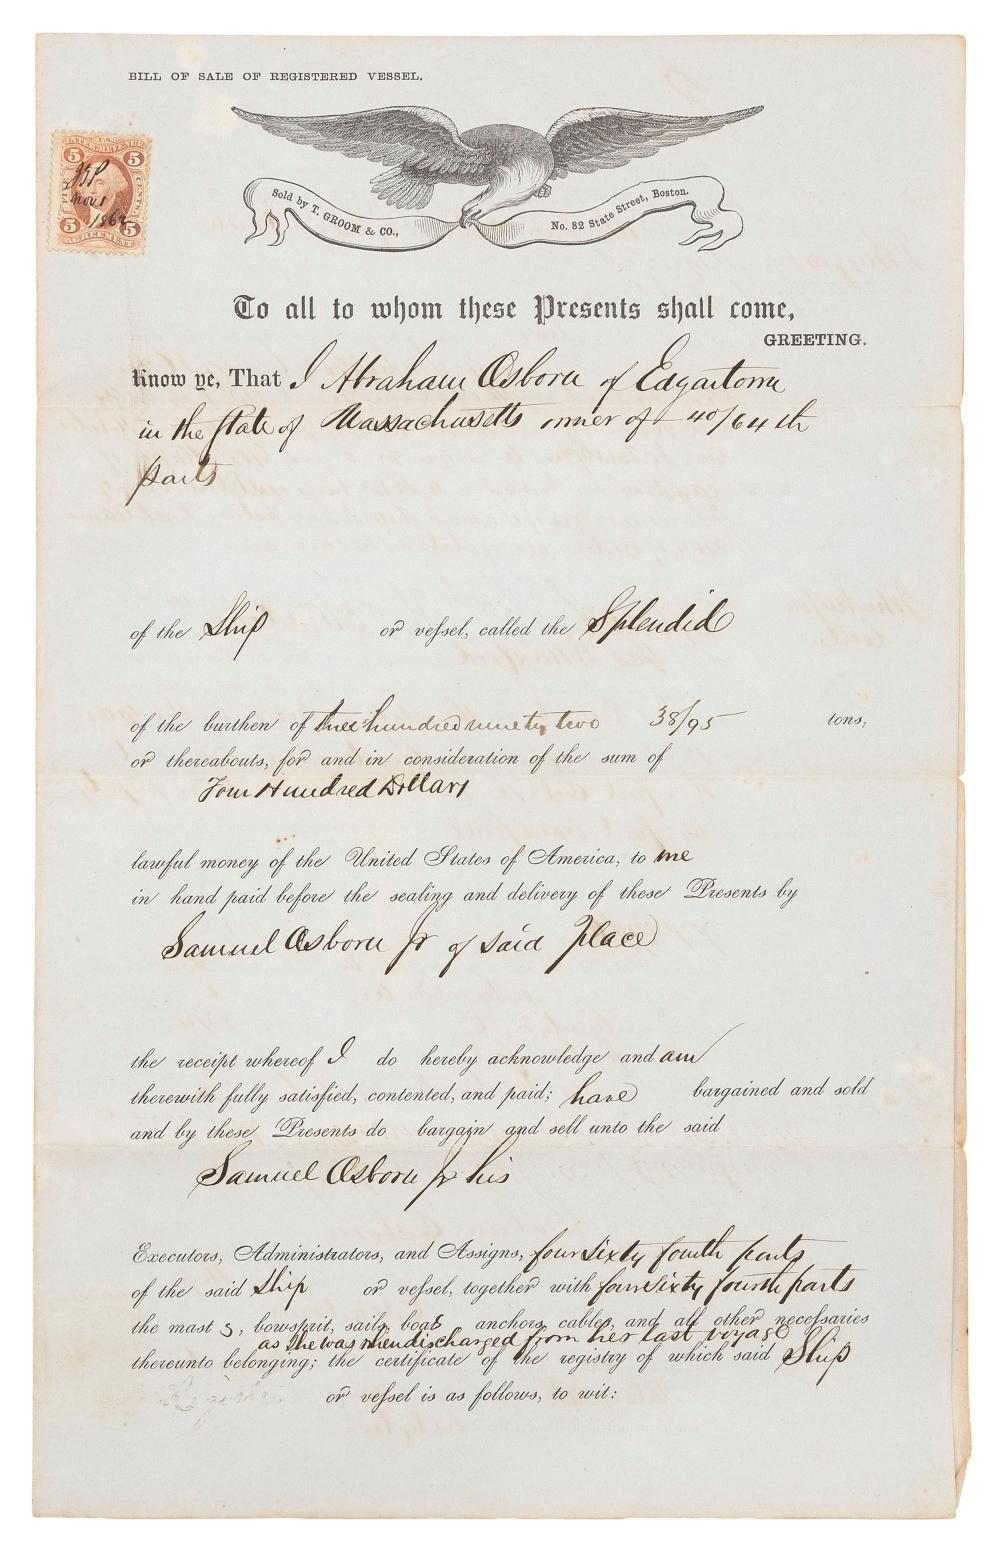 BILL OF SALE OF REGISTERED VESSEL.
5 5
CENTS
JBP
Nov 1
1862
5 5
AGREEMENT
Sold by T. GROOM & CO., No. 82 State Street, Boston.
To all to whom these Presents shall come,
GREETING.
Know ye, That I Abraham Osborn of Edgartown
in the State of Massachusetts owner of 40/64 th
parts
of the Ship or vessel, called the Splendid
of the burthen of three hundred ninety two 38/95 tons,
or thereabouts, for and in consideration of the sum of
Four Hundred Dollars
lawful money of the United States of America, to me
in hand paid before the sealing and delivery of these Presents by
Samuel Osborn Jr of said Place
the receipt whereof I do hereby acknowledge and am
therewith fully satisfied, contented, and paid; have bargained and sold
and by these Presents do bargain and sell unto the said
Samuel Osborn Jr his
Executors, Administrators, and Assigns, four sixty fourth parts
of the said Ship or vessel, together with four sixty fourth parts
the mast s, bowsprit, sails, boats anchors, cables, and all other necessaries
as she was when discharged from her last voyage
thereunto belonging; the certificate of the registry of which said Ship
or vessel is as follows, to wit: